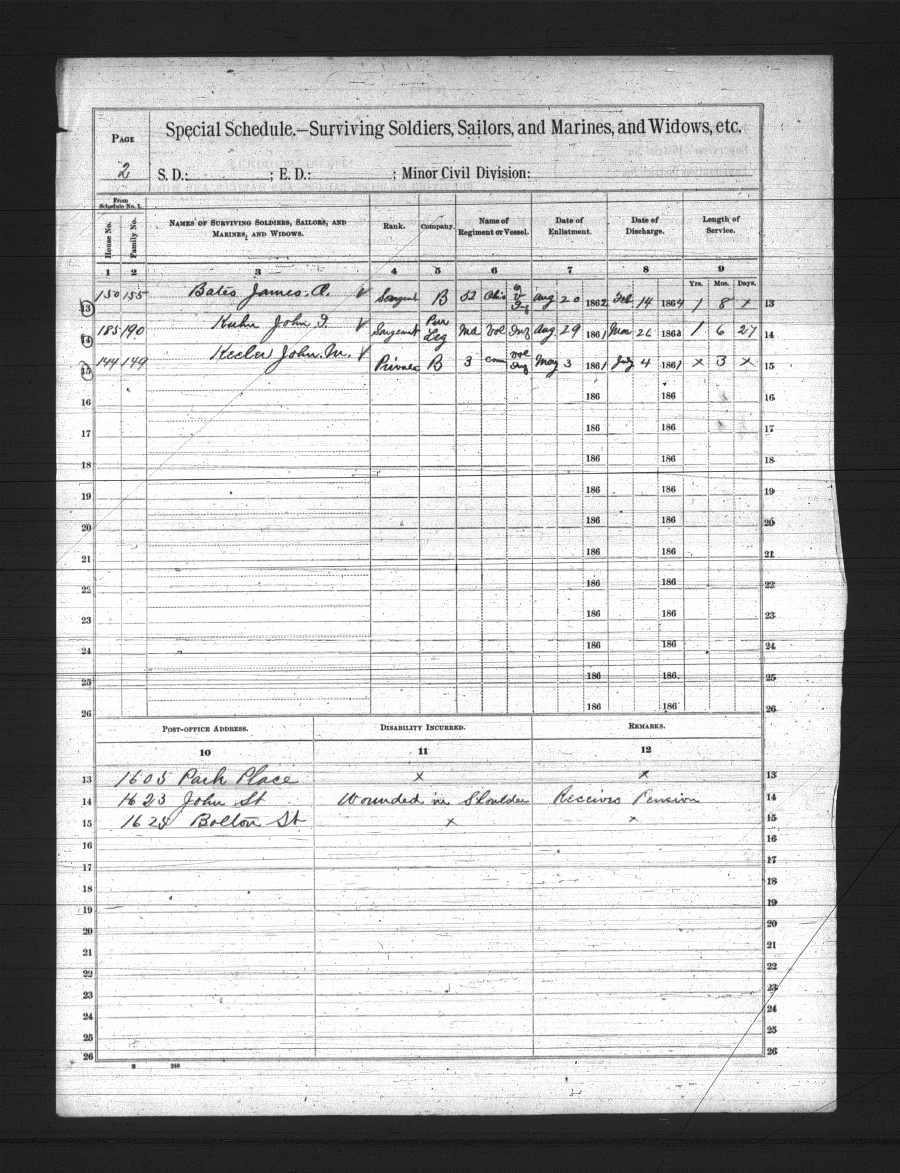 PAGE
2
Special Schedule.—Surviving Soldiers, Sailors, and Marines, and Widows, etc.
S. D.: ; E. D.: ; Minor Civil Division:
From Schedule No. 1.
House No. Family No. NAMES OF SURVIVING SOLDIERS, SAILORS, AND MARINES, AND WIDOWS. Rank. Company. Name of Regiment or Vessel. Date of Enlistment. Date of Discharge. Length of Service.
1 2 3 4 5 6 7 8 9
Yrs. Mos. Days.
13 150 155 Bates James. A. V Sargent B 52 Ohio Aug 20 1862 Feb 14 1864 1 8 x 13
14 185 190 Kuhn John V Sargeant Pur Leg Md Vol Inf Aug 29 1861 Mar 26 1863 1 6 27 14
15 144 149 Keeler John. M. V Private B 3 Conn Vol Inf May 3 1861 July 4 1861 x 3 x 15
16 186 186 16
17 186 186 17
18 186 186 18
19 186 186 19
20 186 186 20
21 186 186 21
22 186 186 22
23 186 186 23
24 186 186 24
25 186 186 25
26 186 186 26
POST-OFFICE ADDRESS. DISABILITY INCURRED. REMARKS.
10 11 12
13 1605 Park Place x x 13
14 1623 John St Wounded in Shoulder Receives Pension 14
15 Bolton St x x 15
16 16
17 17
18 18
19 19
20 20
21 21
22 22
23 23
24 24
25 25
26 26
240